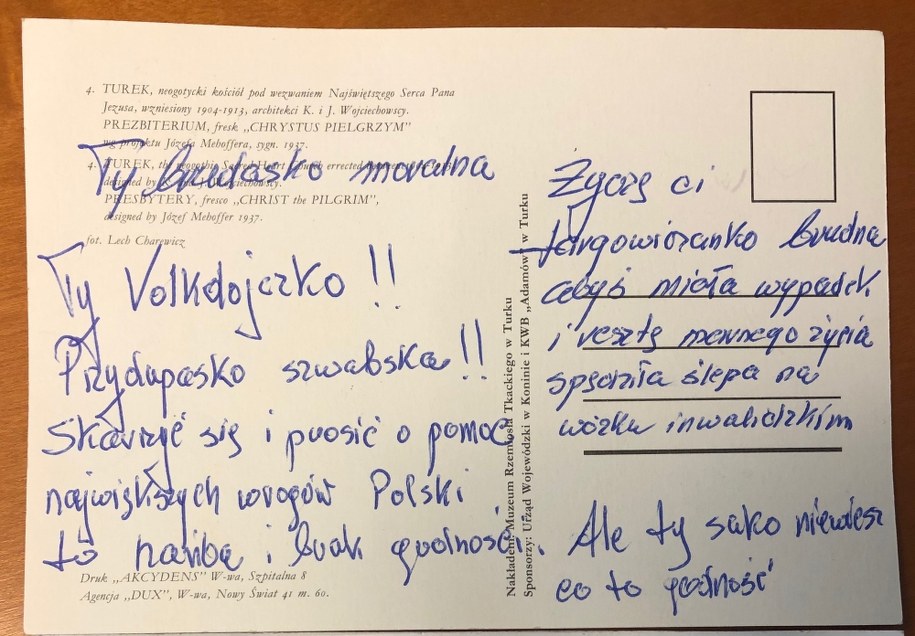 4. TUREK, neogotycki kościół pod wezwaniem Najświętszego Serca Pana
Jezusa, wzniesiony 1904-1913, architekci K. i J. Wojciechowscy.
PREZBITERIUM, fresk „CHRYSTUS PIELGRZYM"
wg projektu Józefa Mehoffera, sygn. 1937.
4. TUREK, the neogothic Sacred Heart errected
designed by
PRESBYTERY, fresco „CHRIST the PILGRIM",
designed by Józef Mehoffer 1937.
fot. Lech Charewicz
Ty brudasko moralna
Ty Volkdojczko !!
Przydupasko szwabska !!
Skarżyć się i prosić o pomoc
największych wrogów Polski
to hańba i brak godności.
Druk „AKCYDENS" W-wa, Szpitalna 8
Agencja „DUX", W-wa, Nowy Świat 41 m. 60.
Nakładem: Muzeum Rzemiosła Tkackiego w Turku
Sponsorzy: Urząd Wojewódzki w Koninie i KWB „Adamów" w Turku
Życzę ci
targowiczanko brudna
cobyś miała wypadek
i resztę marnego życia
spędziła ślepa na
wózku inwalidzkim
Ale ty niewiesz
co to godność